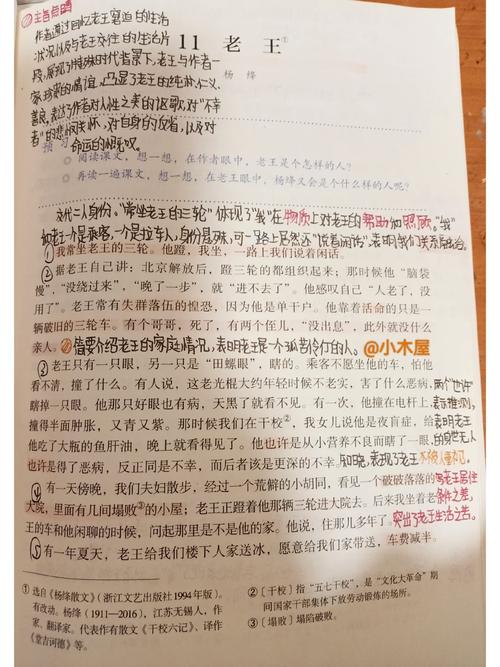 主旨点睛
作者通过回忆老王窘迫的生活
状况以及与老王交往的生活片
段，展现了特殊时代背景下，老王与作者一
家珍贵的情谊，凸显了老王的纯朴、仁义、
善良，表达了作者对人性之美的讴歌，对“不幸
者”的悲悯关怀，对自身的反省，以及对
命运的慨叹。
11 老王①
杨绛
预习
◎ 阅读课文，想一想，在作者眼中，老王是个怎样的人？
◎ 再读一遍课文，想一想，在老王眼中，杨绛又会是个什么样的人呢？
交代二人身份。“常坐老王的三轮”体现了“我”在物质上对老王的帮助和照顾。“我”
和老王一个是乘客，一个是拉车人，身份悬殊，可一路上居然还“说着闲话”，表明我们关系融洽。
①我常坐老王的三轮。他蹬，我坐，一路上我们说着闲话。
②据老王自己讲：北京解放后，蹬三轮的都组织起来；那时候他“脑袋
慢”，“没绕过来”，“晚了一步”，就“进不去了”。他感叹自己“人老了，没
用了”。老王常有失群落伍的惶恐，因为他是单干户。他靠着活命的只是一
辆破旧的三轮车。有个哥哥，死了，有两个侄儿，“没出息”，此外就没什么
亲人。简要介绍老王的家庭情况，表明老王是一个孤苦伶仃的人。@小木屋
③老王只有一只眼，另一只是“田螺眼”，瞎的。乘客不愿坐他的车，怕他
看不清，撞了什么。有人说，这老光棍大约年轻时候不老实，害了什么恶病，
瞎掉一只眼。他那只好眼也有病，天黑了就看不见。有一次，他撞在电杆上，
撞得半面肿胀，又青又紫。那时候我们在干校②，我女儿说他是夜盲症，给
他吃了大瓶的鱼肝油，晚上就看得见了。他也许是从小营养不良而瞎了一眼，
也许是得了恶病，反正同是不幸，而后者该是更深的不幸。
两个“也许”
表示推测，
表明老王
的身世无人
知晓，表现了老王不被人重视。
④有一天傍晚，我们夫妇散步，经过一个荒僻的小胡同，看见一个破破落落的
大院，里面有几间塌败③的小屋；老王正蹬着他那辆三轮进大院去。后来我坐着老
王的车和他闲聊的时候，问起那里是不是他的家。他说，住那儿多年了。
写老王居住
条件之差，
突出了老王生活之苦。
⑤有一年夏天，老王给我们楼下人家送冰，愿意给我们家带送，车费减半。
① 选自《杨绛散文》（浙江文艺出版社1994年版）。
有改动。杨绛（1911—2016），江苏无锡人，作
家、翻译家。代表作有散文《干校六记》、译作
《堂吉诃德》等。
② 〔干校〕指“五七干校”，是“文化大革命”期
间国家干部集体下放劳动锻炼的场所。
③ 〔塌败〕塌陷破败。